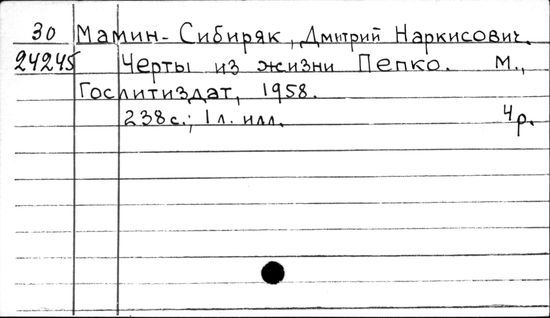 30 Мамин-Сибиряк, Дмитрий Наркисович.
24245 Черты из жизни Пепко. М.,
Гослитиздат, 1958.
238 с.; 1 л. илл. 4 р.